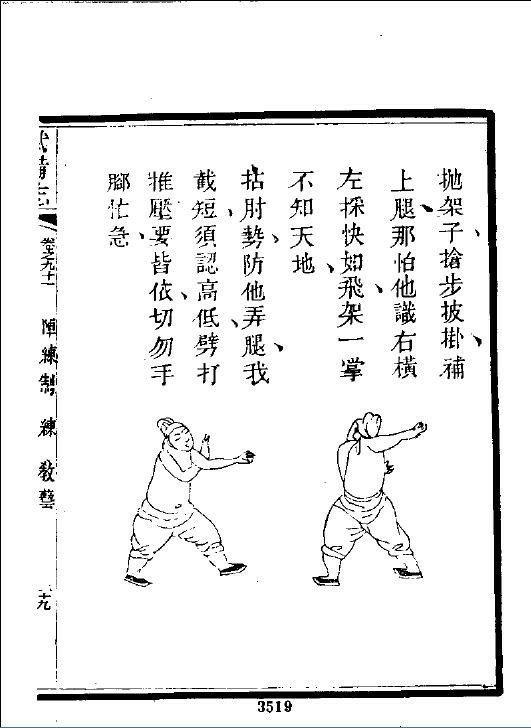 拋架子搶步披掛、補
上腿、那怕他識、右橫
左採快如飛、架一掌
不知天地、
拈肘勢防他弄腿、我
截短、須認高低、劈打
推壓要皆依、切勿手
腳忙急、
武備志
卷之九十一
陣練制
練
教藝
十九
3519